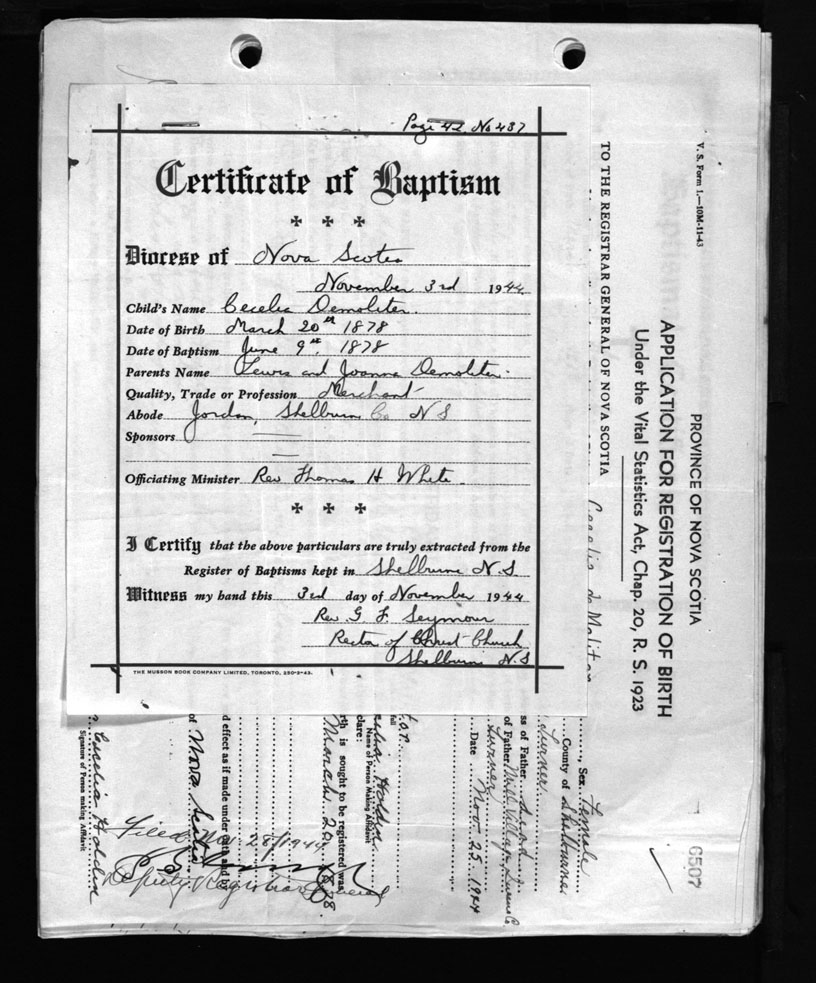 Page 42 No 437
Certificate of Baptism
Diocese of Nova Scotia
November 3rd 1944
Child's Name Cecelia Demoliter.
Date of Birth March 20th 1878
Date of Baptism June 9th, 1878
Parents Name Lewis and Joanna Demoliter.
Quality, Trade or Profession Merchant
Abode Jordan, Shelburn Co N S
Sponsors
Officiating Minister Rev Thomas H White
I Certify that the above particulars are truly extracted from the
Register of Baptisms kept in Shelburne N.S
Witness my hand this 3rd day of November 1944
Rev G F Seymour
Rector of Christ Church
Shelburn N.S
THE MUSSON BOOK COMPANY LIMITED, TORONTO, 250-2-43.
V. S. Form 1.—10M-11-43
PROVINCE OF NOVA SCOTIA
APPLICATION FOR REGISTRATION OF BIRTH
Under the Vital Statistics Act, Chap. 20, R. S. 1923
TO THE REGISTRAR GENERAL OF NOVA SCOTIA
6507
Sex Female
County of Shelburne
ss of Father
of Father Mill Village, Queens Co
Date Nov. 25, 1944
full
Name of Person Making Affidavit
Holden
clare:
th is sought to be registered was
March 20 1878.
d effect as if made under oath and by
of Nova Scotia
Filed Nov 28/1944
Deputy Registrar General
Cecelia Holden
Signature of Person making Affidavit